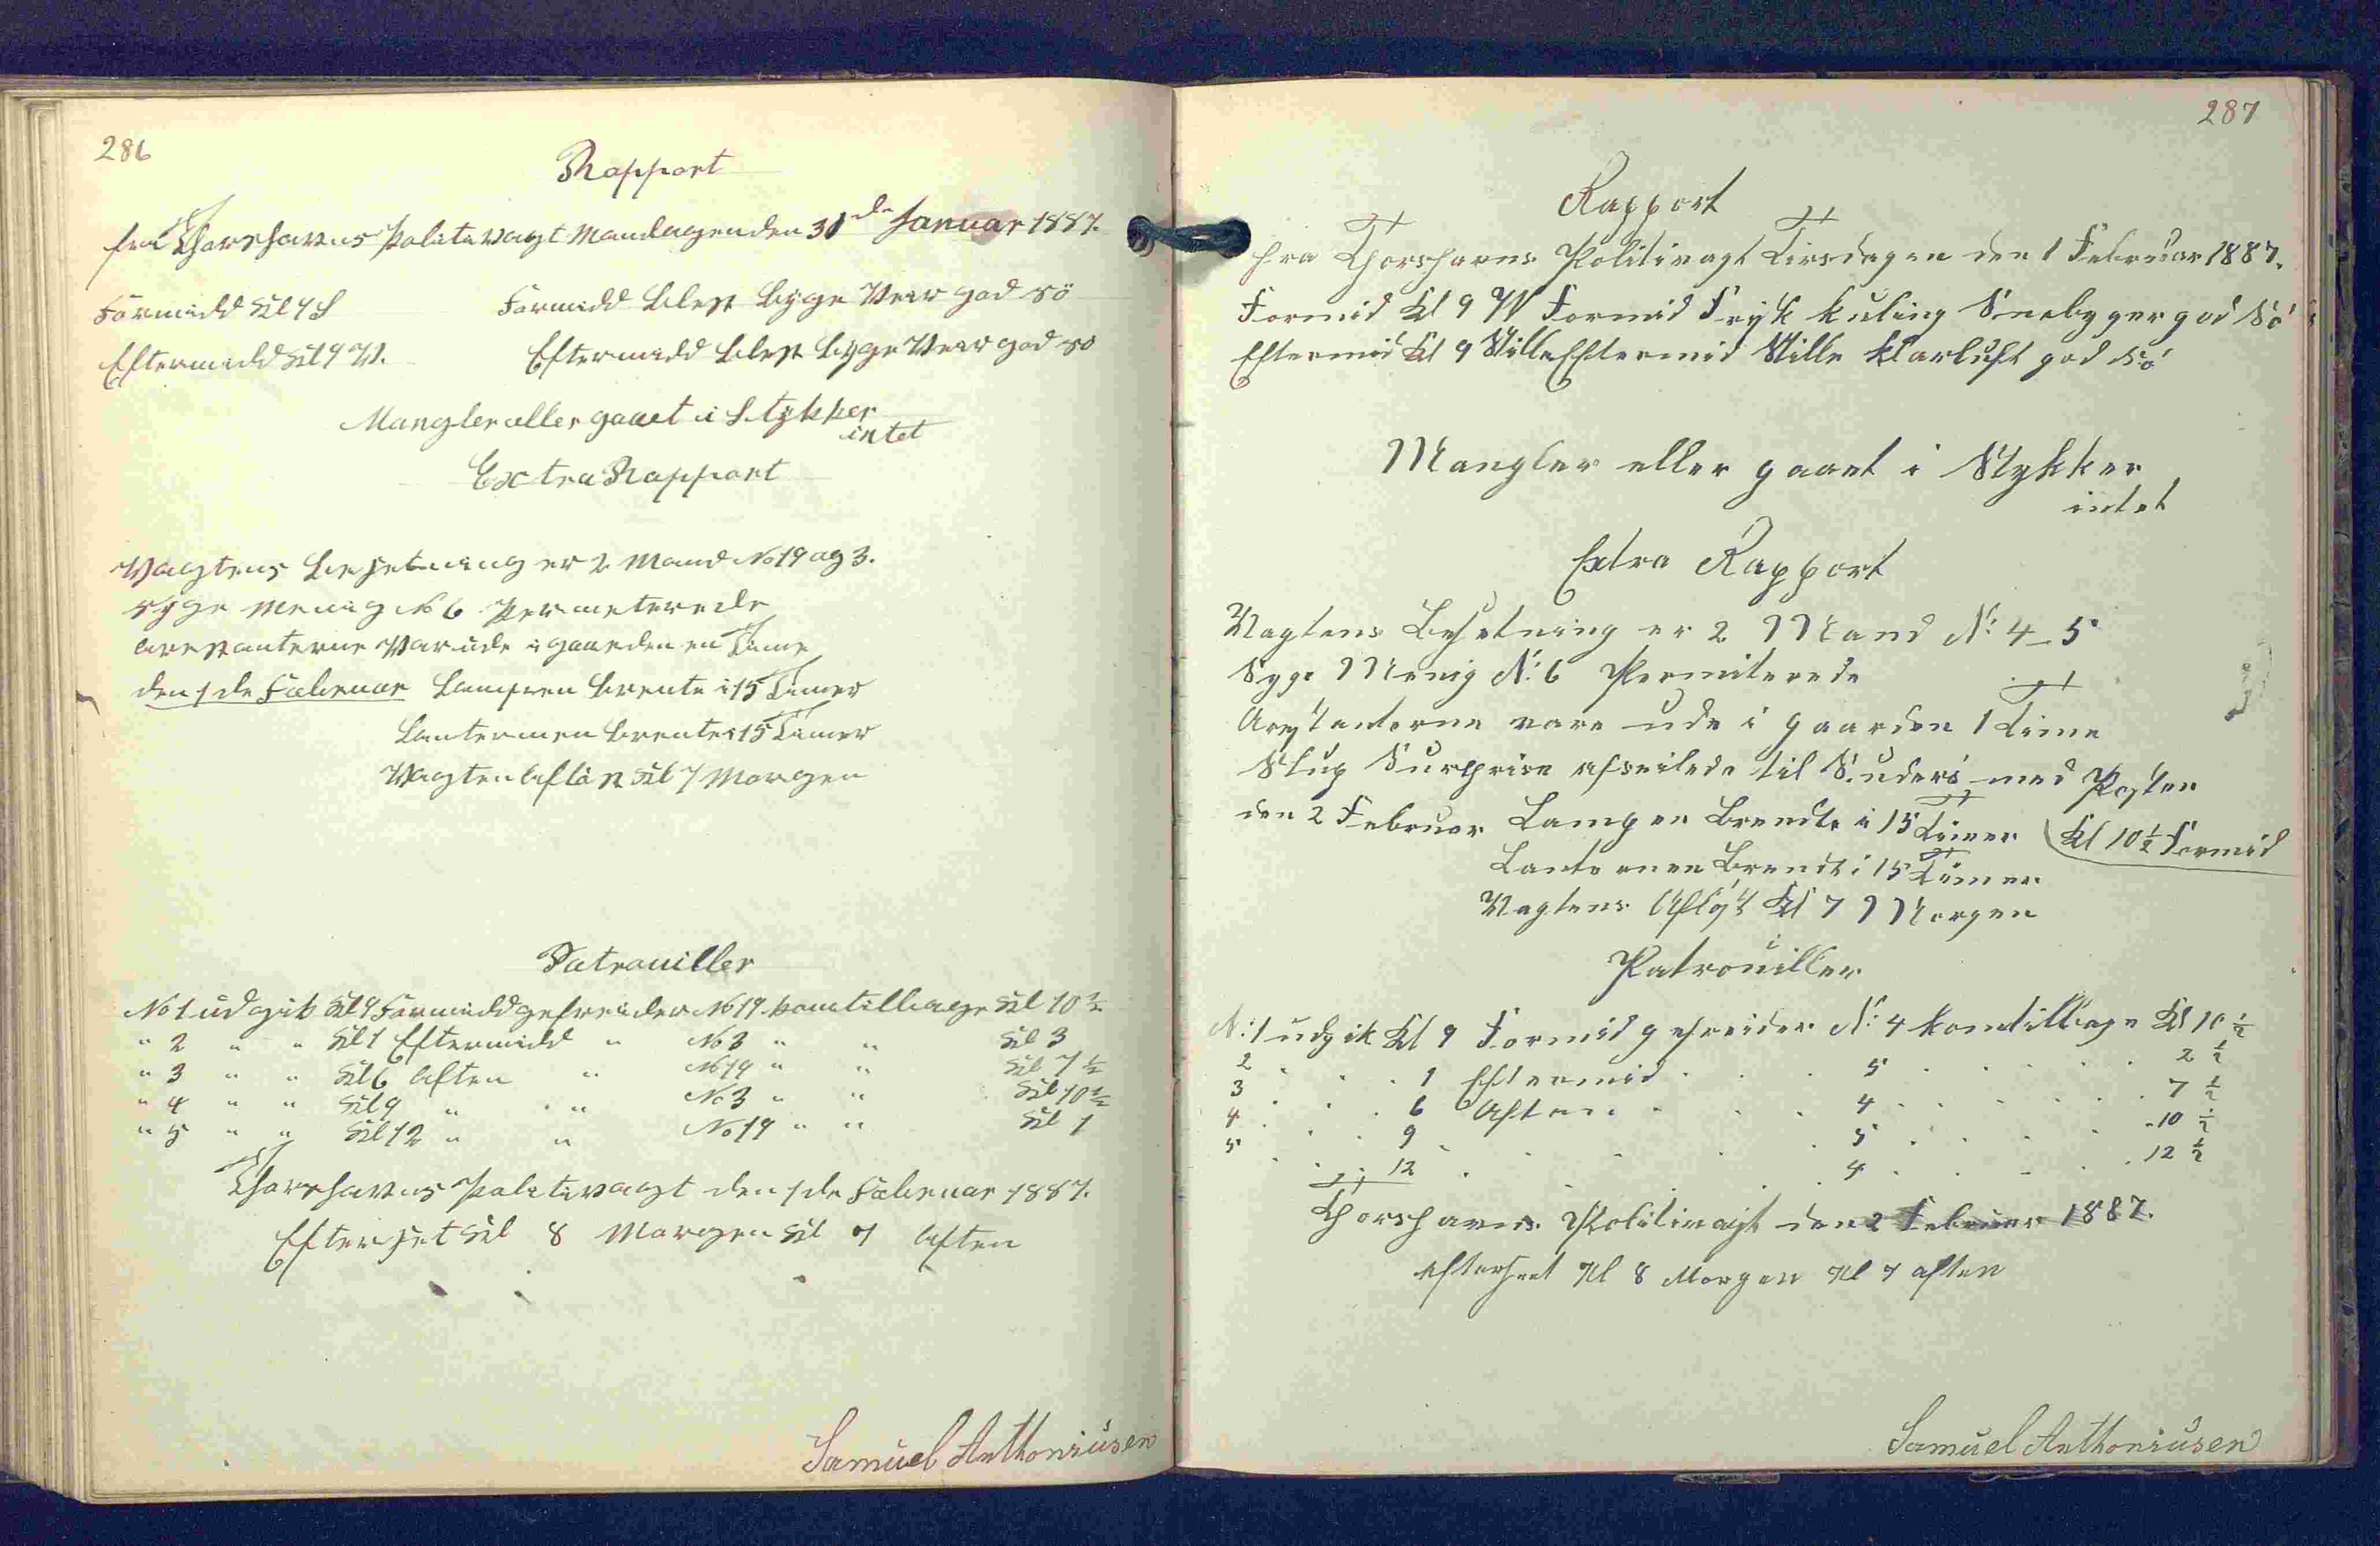 286
Rapport
fra Thorshavns Politivagt Mandagen den 31de Januar 1887.
Formidd Kl 9 S Formidd blest byge Veir god sö
Eftermidd Kl 9 V. Eftermidd blest byge Veir god sö
Mangler eller gaaet i Stykker
intet
Extra Rapport
Vagtens besetning er 2 Mand No 19 og 3.
syge menig No 6 Permeterede
arestanterne Var ude i gaarden en Time
den 1de Febervar Lampen brente i 15 Timer
Lanternen brente i 15 Timer
Vagten Aflöst Kl 7 Morgen
Patrouiller
No 1 udgik Kl 9 Formidd gefreider No 19 kom tilbage Kl 10½
" 2 " " Kl 1 Eftermidd " No 3 " " Kl 3
" 3 " " Kl 6 Aften " No 19 " " Kl 7½
" 4 " " Kl 9 " " No 3 " " Kl 10½
" 5 " " Kl 12 " " No 19 " " Kl 1
Thorshavns Politivagt den 1de Febervar 1887.
Efterset Kl 8 Morgen Kl 7 Aften
Samuel Anthoniusen
287
Rapport
fra Thorshavns Politivagt Tirsdagen den 1 Februar 1887.
Formid Kl 9 W Formid Frisk kuling Snebyger god Sö
Eftermid Kl 9 Stille Eftermid Stille klarluft god Sö
Mangler eller gaaet i Stykker
intet
Extra Rapport
Vagtens Besetning er 2 Mand N: 4 - 5
Syge Menig N: 6 Permiterede
Arestanterne vare ude i gaarden 1 Time
Slup Surprise afseilede til Suderö med Posten
den 2 Februar Lampen Brendte i 15 Timer Kl 10½ Formid
Lanternen Brendt i 15 Timer
Vagtens Aflöst Kl 7 Morgen
Patrouiller
N: 1 udgik Kl 9 Formid gefreider N: 4 kom tilbage Kl 10½
2 . . . 1 Eftermid . . . 5 . . . . 2½
3 . . . 6 Aften . . . 4 . . . . 7½
4 . . . 9 . . . 5 . . . . 10½
5 . . . 12 . . . 4 . . . . 12½
Thorshavns Politivagt den 2 Februar 1887.
Efterseet Kl 8 Morgen Kl 7 aften
Samuel Anthoniusen